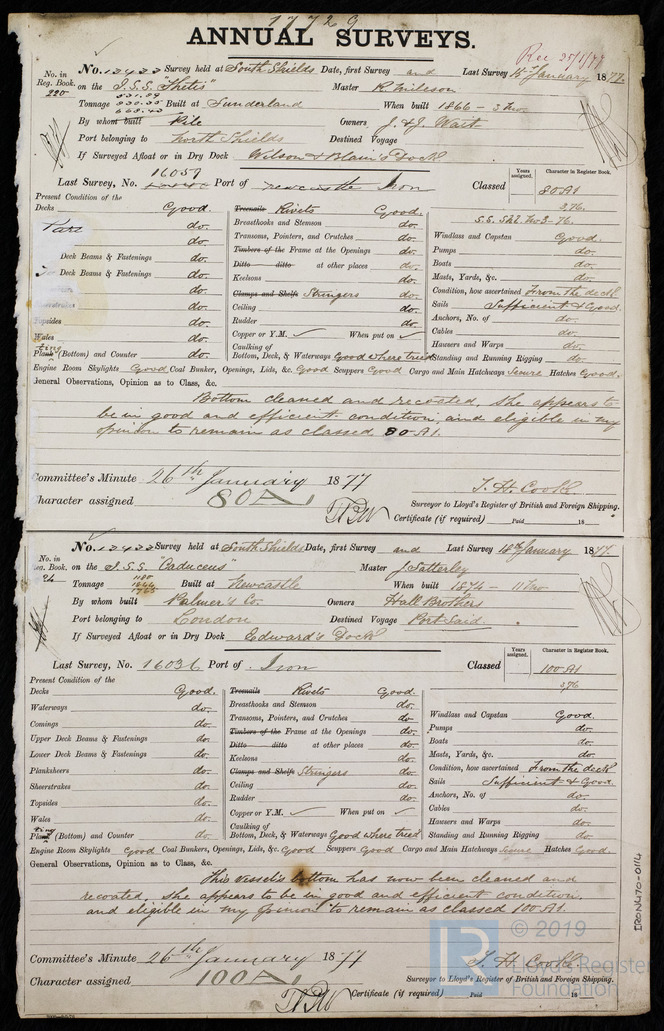 17729
ANNUAL SURVEYS.
Rec 25/1/77
No. in Reg. Book. 220
No. 12422 Survey held at South Shields Date, first Survey and Last Survey 15th January 1877.
on the I.S.S. "Thetis" Master R. Wileson
Tonnage Built at Sunderland When built 1866 - 3 mo
By whom built Pile Owners J. & J. Wait
Port belonging to North Shields Destined Voyage
If Surveyed Afloat or in Dry Dock Wilson & Blain's Dock
Last Survey, No. 16057 Port of Newcastle Iron Classed
Years assigned. Character in Register Book.
80A1
3,76.
S.S. Shl. No 2-76.
Present Condition of the
Decks Good.
do.
do.
Deck Beams & Fastenings do.
Deck Beams & Fastenings do.
do.
do.
Topsides do.
Wales do.
Plating (Bottom) and Counter do.
Treenails Rivets Good.
Breasthooks and Stemson do.
Transoms, Pointers, and Crutches do.
Timbers of the Frame at the Openings do.
Ditto ditto at other places do.
Keelsons do.
Clamps and Shelfs Stringers do.
Ceiling do.
Rudder do.
Copper or Y.M. ✓ When put on ✓
Caulking of
Bottom, Deck, & Waterways Good where tried
Windlass and Capstan Good.
Pumps do.
Boats do.
Masts, Yards, &c. do.
Condition, how ascertained From the deck
Sails Sufficient & Good.
Anchors, No. of do.
Cables do.
Hawsers and Warps do.
Standing and Running Rigging do.
Engine Room Skylights Good Coal Bunker, Openings, Lids, &c. Good Scuppers Good Cargo and Main Hatchways Secure Hatches Good.
General Observations, Opinion as to Class, &c.
Bottom cleaned and recoated. She appears to
be in good and efficient condition, and eligible in my
opinion to remain as classed 80A1.
Committee's Minute 26th January 1877
Character assigned 80A1
T. H. Cooke
Surveyor to Lloyd's Register of British and Foreign Shipping.
Certificate (if required) Paid 18
No. in Reg. Book. 24
No. 12422 Survey held at South Shields Date, first Survey and Last Survey 18th January 1877.
on the I.S.S. "Caduceus" Master J. Satterley
Tonnage Built at Newcastle When built 1874 - 11 mo
By whom built Palmer's Co. Owners Hall Brothers
Port belonging to London Destined Voyage Port Said
If Surveyed Afloat or in Dry Dock Edward's Dock
Last Survey, No. 16036 Port of Iron Classed
Years assigned. Character in Register Book.
100A1
3,76
Present Condition of the
Decks Good.
Waterways do.
Comings do.
Upper Deck Beams & Fastenings do.
Lower Deck Beams & Fastenings do.
Planksheers do.
Sheerstrakes do.
Topsides do.
Wales do.
Plating (Bottom) and Counter do.
Treenails Rivets Good.
Breasthooks and Stemson do.
Transoms, Pointers, and Crutches do.
Timbers of the Frame at the Openings do.
Ditto ditto at other places do.
Keelsons do.
Clamps and Shelfs Stringers do.
Ceiling do.
Rudder do.
Copper or Y.M. ✓ When put on ✓
Caulking of
Bottom, Deck, & Waterways Good where tried
Windlass and Capstan Good.
Pumps do.
Boats do.
Masts, Yards, &c. do.
Condition, how ascertained From the deck
Sails Sufficient & Good.
Anchors, No. of do.
Cables do.
Hawsers and Warps do.
Standing and Running Rigging do.
Engine Room Skylights Good Coal Bunkers, Openings, Lids, &c. Good Scuppers Good Cargo and Main Hatchways Secure Hatches Good.
General Observations, Opinion as to Class, &c.
This vessel's bottom has now been cleaned and
recoated. She appears to be in good and efficient condition,
and eligible in my opinion to remain as classed 100A1.
Committee's Minute 26th January 1877
Character assigned 100A1
T. H. Cooke
Surveyor to Lloyd's Register of British and Foreign Shipping.
Certificate (if required) Paid 18
IRON470-0114
© 2019
LR
Lloyd's Register
Foundation